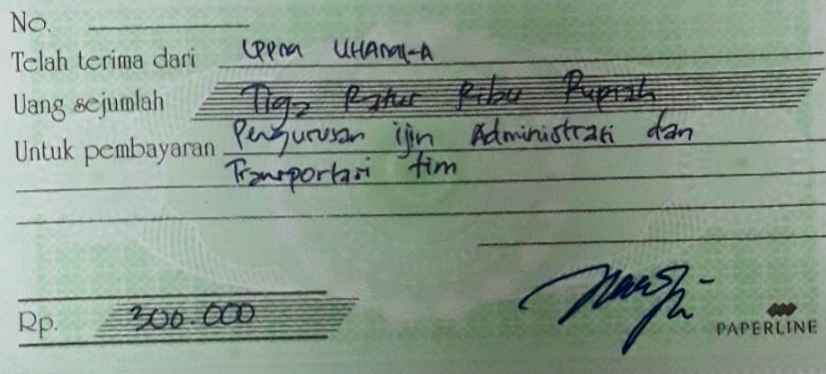 No.
Telah terima dari LPPM UHAMKA
Uang sejumlah Tiga Ratus Ribu Rupiah
Untuk pembayaran Pengurusan ijin Administrasi dan
Transportasi tim
Rp. 300.000
PAPERLINE